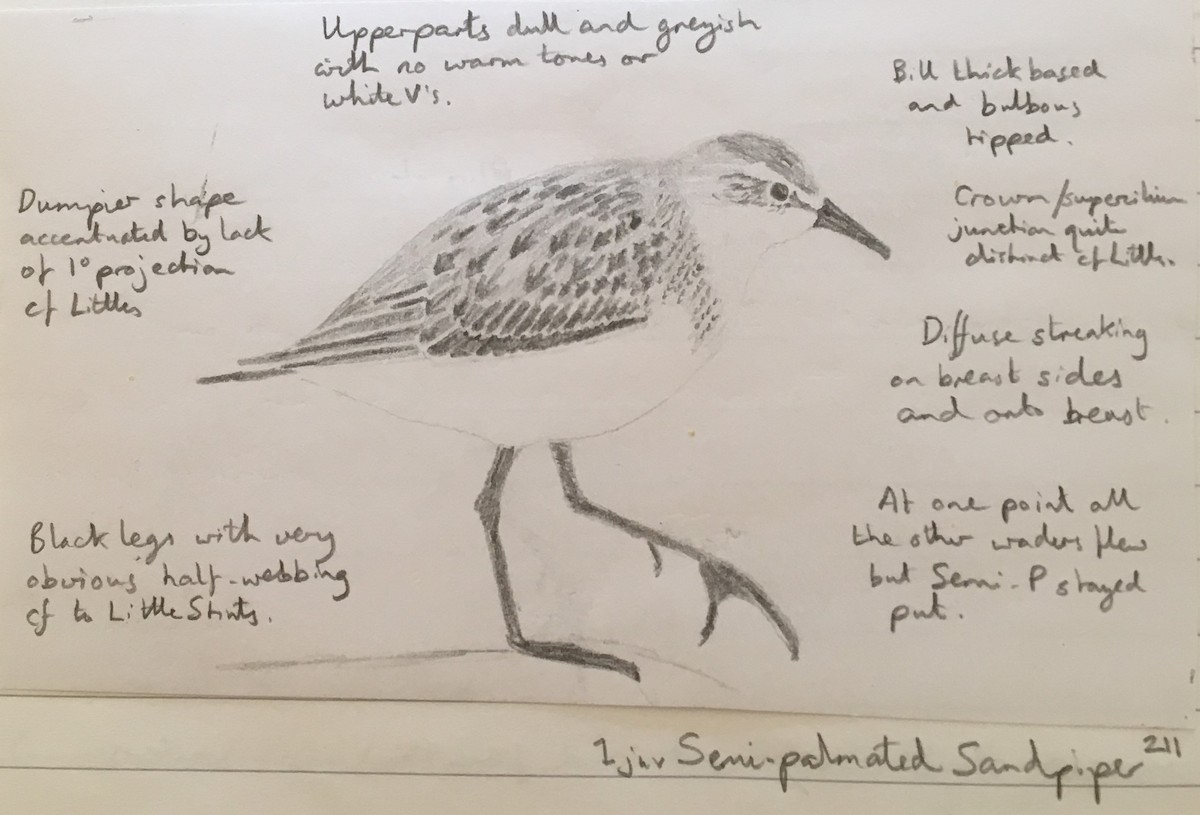 Upperparts dull and greyish
with no warm tones or
white V's.
Bill thick based
and bulbous
tipped.
Dumpier shape
accentuated by lack
of 1° projection
cf Littles
Crown/supercilium
junction quite
distinct cf Little.
Diffuse streaking
on breast sides
and onto breast.
Black legs with very
obvious half-webbing
cf to Little Stints.
At one point all
the other waders flew
but Semi-P stayed
put.
1 juv Semi-palmated Sandpiper 211